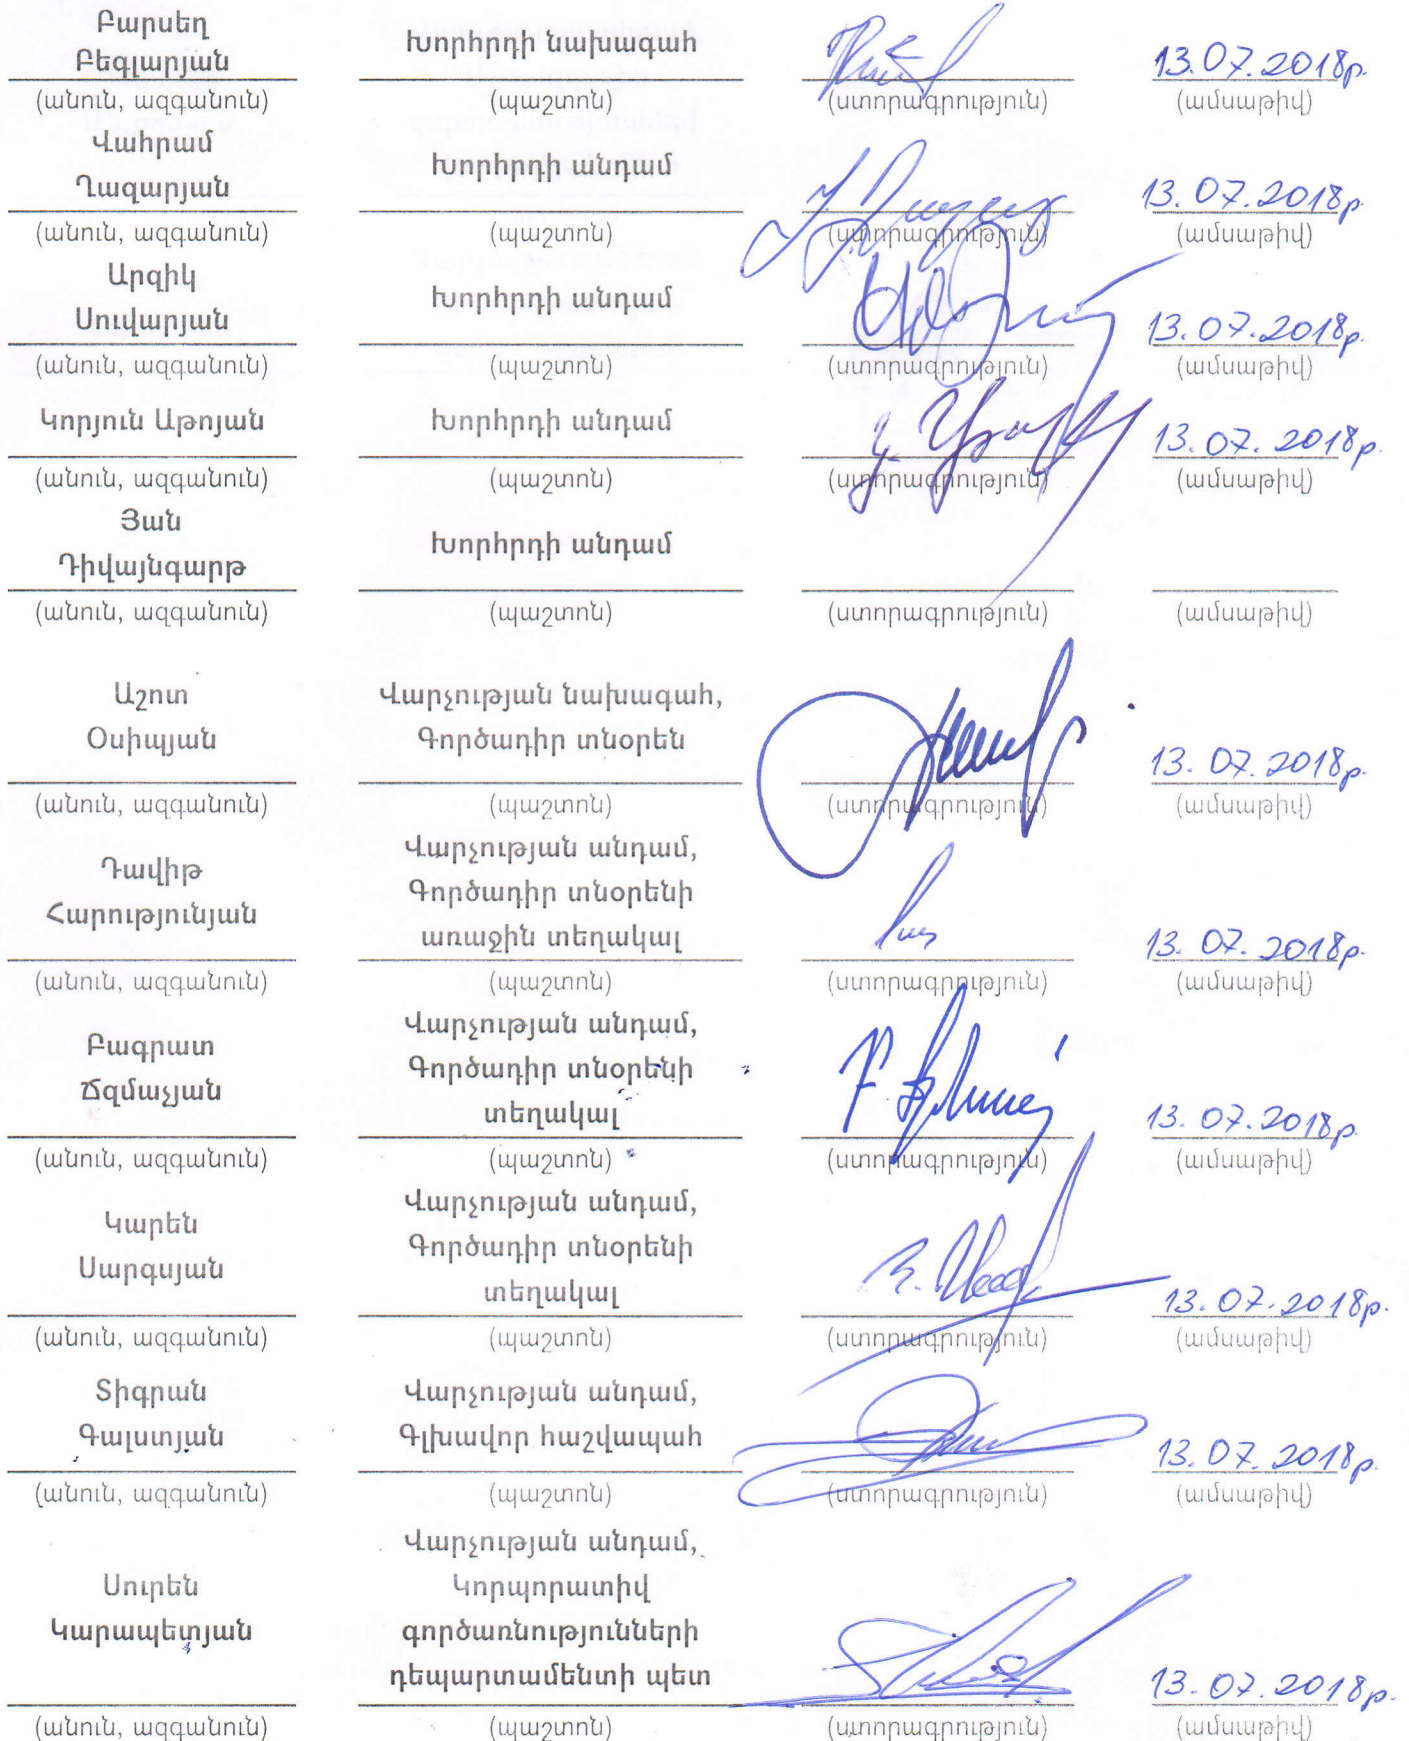 Բարսեղ
Բեգլարյան
Խորհրդի նախագահ
13.07.2018թ.
(անուն, ազգանուն) (պաշտոն) (ստորագրություն) (ամսաթիվ)
Վահրամ
Ղազարյան
Խորհրդի անդամ
13.07.2018թ.
(անուն, ազգանուն) (պաշտոն) (ստորագրություն) (ամսաթիվ)
Արզիկ
Սուվարյան
Խորհրդի անդամ
13.07.2018թ.
(անուն, ազգանուն) (պաշտոն) (ստորագրություն) (ամսաթիվ)
Կորյուն Աթոյան Խորհրդի անդամ 13.07.2018թ.
(անուն, ազգանուն) (պաշտոն) (ստորագրություն) (ամսաթիվ)
Յան
Դիվայնգարթ
Խորհրդի անդամ
(անուն, ազգանուն) (պաշտոն) (ստորագրություն) (ամսաթիվ)
Աշոտ
Օսիպյան
Վարչության նախագահ,
Գործադիր տնօրեն
13.07.2018թ.
(անուն, ազգանուն) (պաշտոն) (ստորագրություն) (ամսաթիվ)
Դավիթ
Հարությունյան
Վարչության անդամ,
Գործադիր տնօրենի
առաջին տեղակալ
13.07.2018թ.
(անուն, ազգանուն) (պաշտոն) (ստորագրություն) (ամսաթիվ)
Բագրատ
Ճզմաչյան
Վարչության անդամ,
Գործադիր տնօրենի
տեղակալ
13.07.2018թ.
(անուն, ազգանուն) (պաշտոն) (ստորագրություն) (ամսաթիվ)
Կարեն
Սարգսյան
Վարչության անդամ,
Գործադիր տնօրենի
տեղակալ
13.07.2018թ.
(անուն, ազգանուն) (պաշտոն) (ստորագրություն) (ամսաթիվ)
Տիգրան
Գալստյան
Վարչության անդամ,
Գլխավոր հաշվապահ
13.07.2018թ.
(անուն, ազգանուն) (պաշտոն) (ստորագրություն) (ամսաթիվ)
Սուրեն
Կարապետյան
Վարչության անդամ,
Կորպորատիվ
գործառնությունների
դեպարտամենտի պետ
13.07.2018թ.
(անուն, ազգանուն) (պաշտոն) (ստորագրություն) (ամսաթիվ)